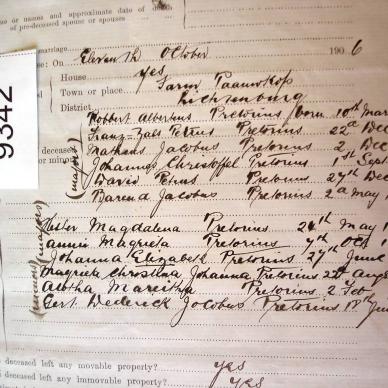 us or names and approximate date of death
of pre-deceased spouse or spouses
marriage
9342
On Eleventh October 1906
House yes
Town or place. Farm Paauwkop
District Lichtenburg
Robbert Albertus Pretorius, born 10th Mar
Pretorius 22d Dec
deceased
or minors
(majors)
Mathens Jacobus Pretorius 2, Dec
Johannes Christoffel Pretorius 1st Sept
David Petrus Pretorius 27th Dec
Barend Jacobus Pretorius 2d May 1
(majors)
Hester Magdalena Pretorius 24th May 1
Annie Magrieta Pretorius 7th Oct
Johanna Elizabeth Pretorius 27th June
Magrieta Christina Johanna Pretorius 22d Aug
Pretorius 2 Feb
Gert Dederick Jacobus Pretorius 18th June
deceased left any movable property? yes
deceased left any immovable property? yes